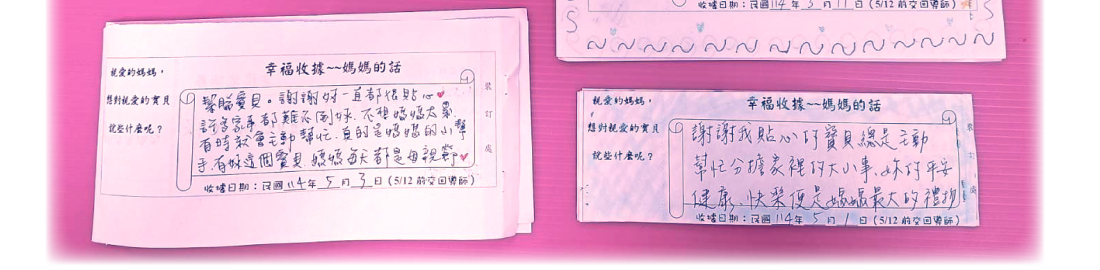 收據日期：民國114年5月11日（5/12前交回導師）
親愛的媽媽，
想對親愛的寶貝
說些什麼呢？
幸福收據~~媽媽的話
寶貝。謝謝妳一直都很貼心♥
許多家事都難不倒妳，不想媽媽太累
有時就會主動幫忙，真的是媽媽的小幫
手，有妳這個寶貝，媽媽每天都是母親節♥
收據日期：民國114年5月3日（5/12前交回導師）
裝
訂
處
親愛的媽媽，
想對親愛的寶貝
說些什麼呢？
幸福收據~~媽媽的話
謝謝我貼心的寶貝總是主動
幫忙分擔家裡的大小事，妳的平安
健康、快樂便是媽媽最大的禮物
收據日期：民國114年5月1日（5/12前交回導師）
裝
訂
處